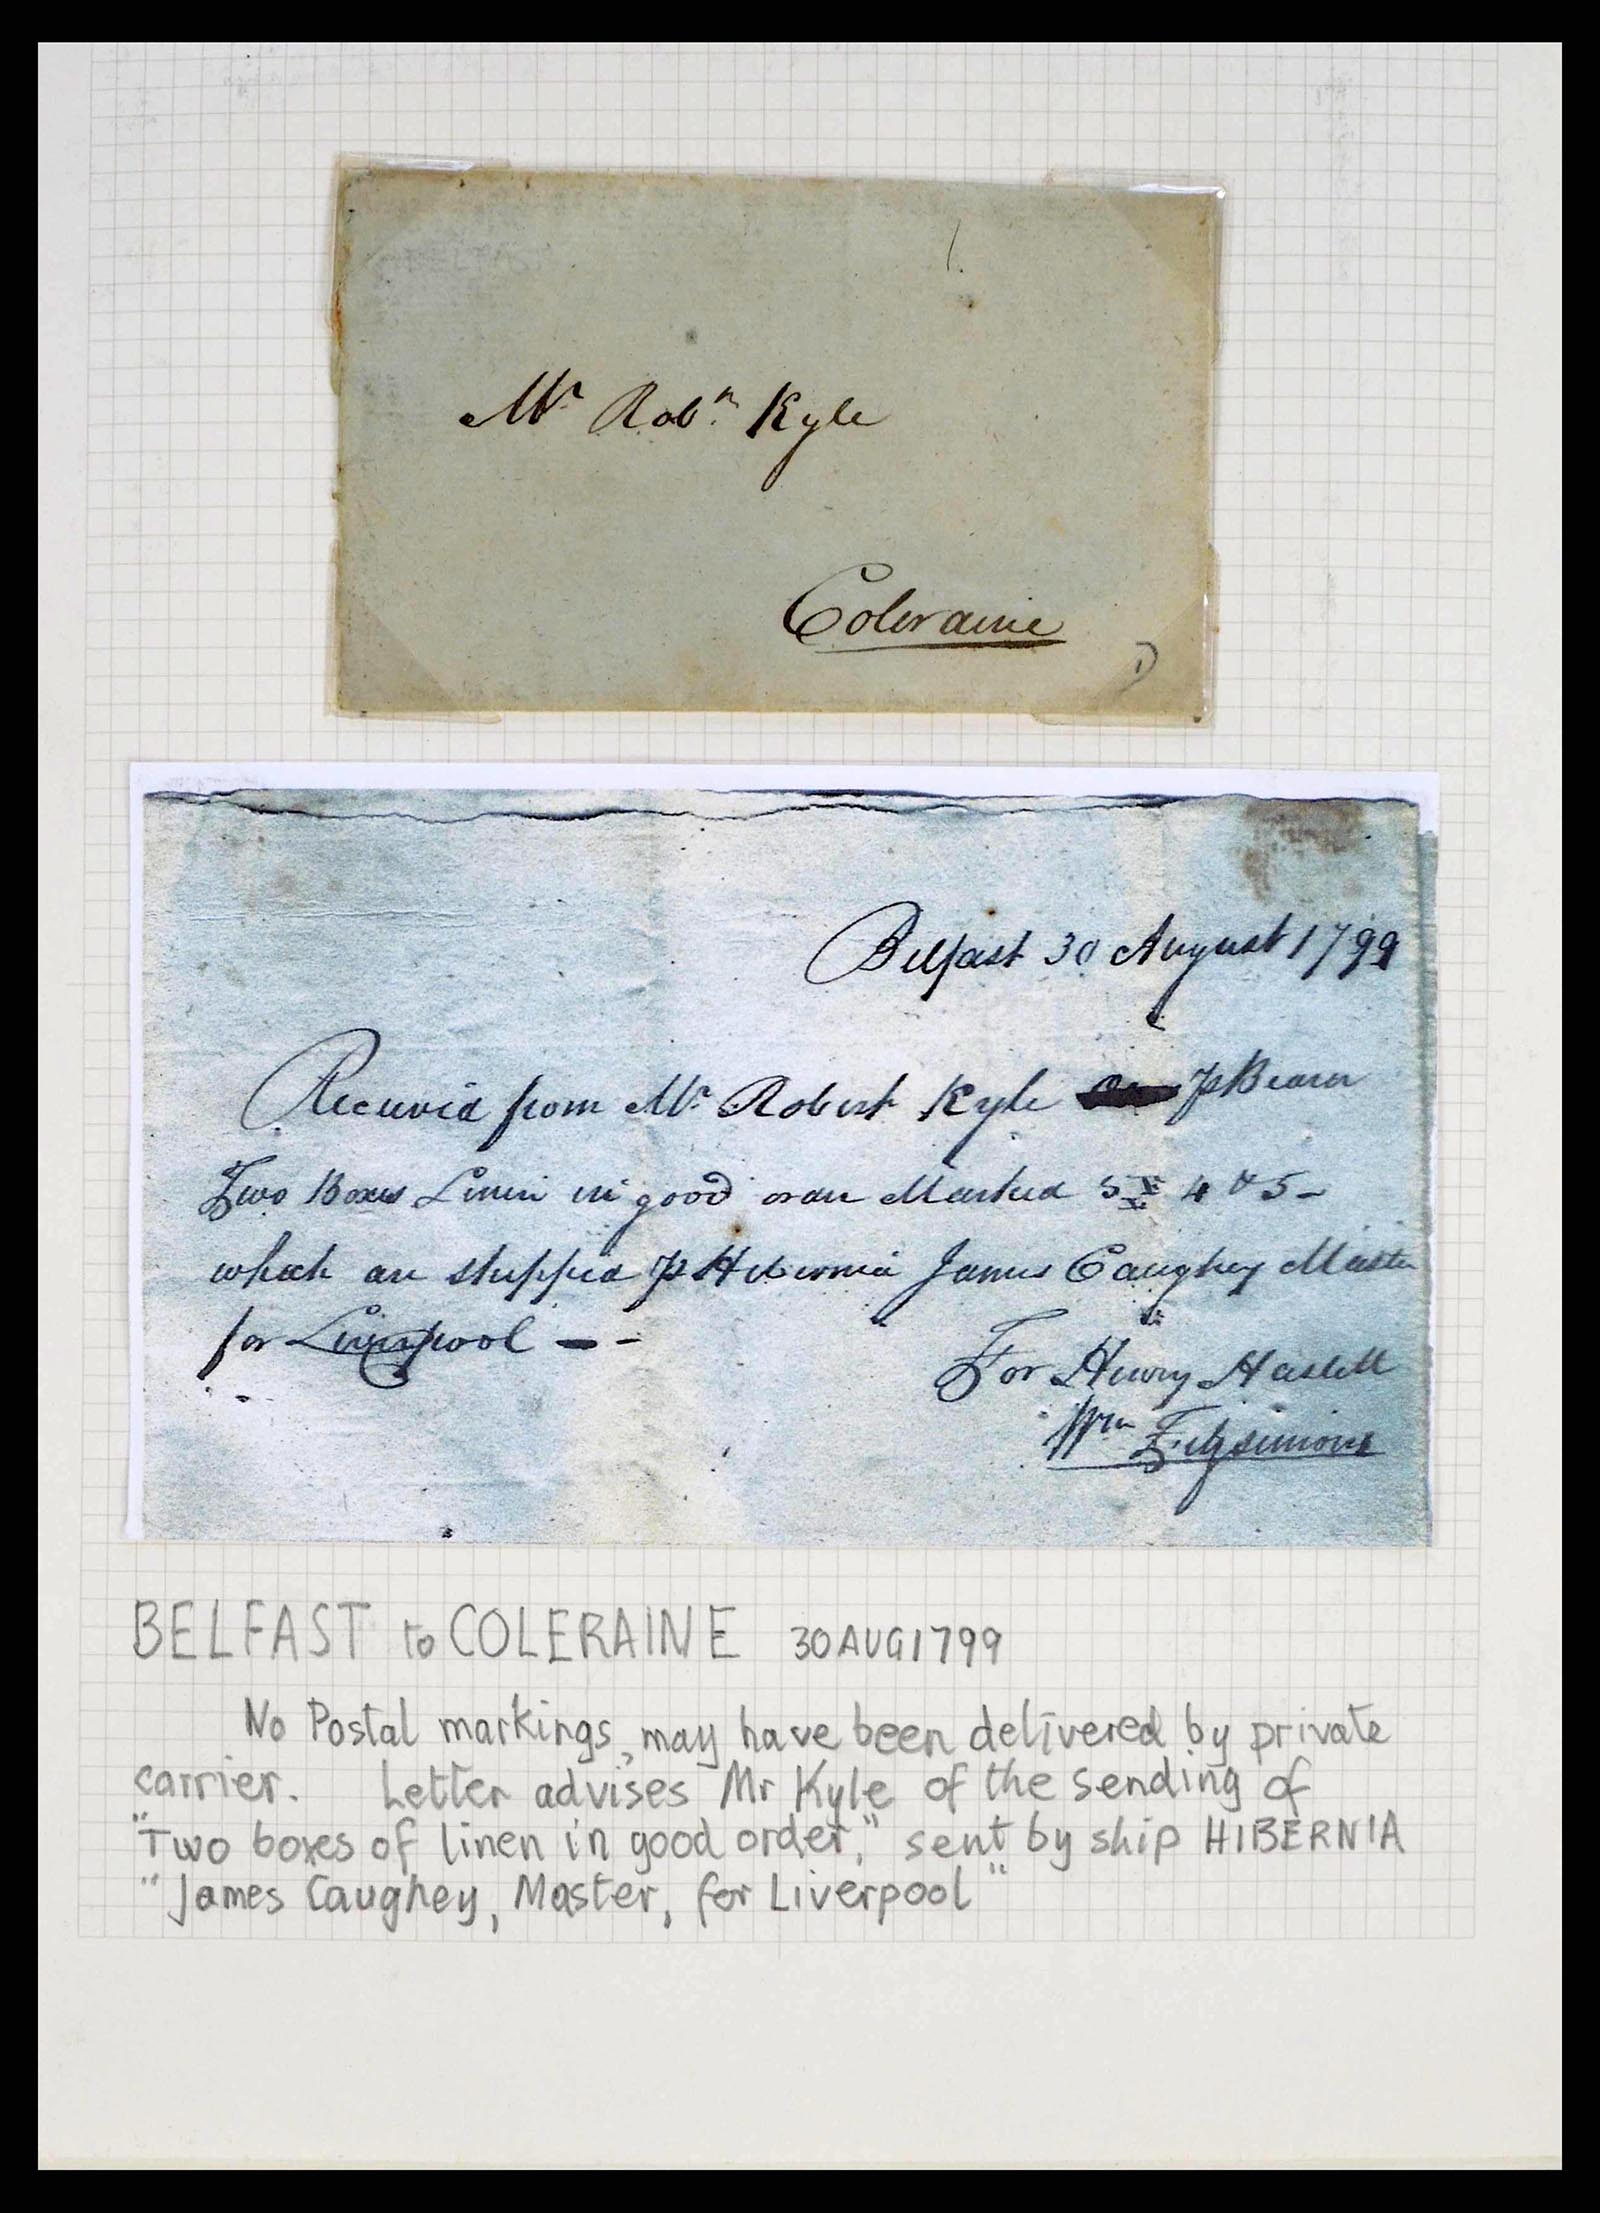 Mr Robn. Kyle
Coleraine
1)
Belfast 30 August 1799
Received from Mr Robert Kyle ⅌ Bearer
Two Boxes Linen in good order Marked 4 & 5 -
which are shipped ⅌ Hibernia James Caughey Master
for Liverpool - -
For Henry Haslett
Wm Fitzsimons
BELFAST to COLERAINE 30 AUG 1799
No Postal markings, may have been delivered by private
carrier. Letter advises Mr Kyle of the sending of
"Two boxes of linen in good order," sent by ship HIBERNIA
"James Caughey, Master, for Liverpool"